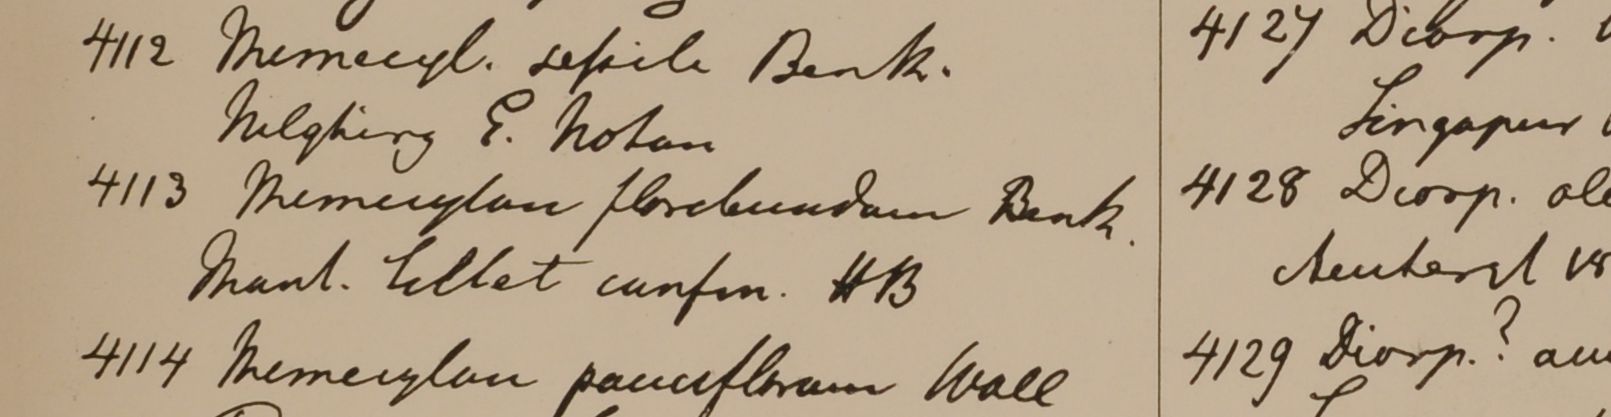 4112 Memecyl. sessile Benth.
Nelghirry E. Noton
4113 Memecylon floribundum Benth.
Mant. confin. HB
4114 Memecylon pauciflorum Wall
4127 Diosp.
Singapur
4128 Diosp. ole
18
4129 Diosp.?